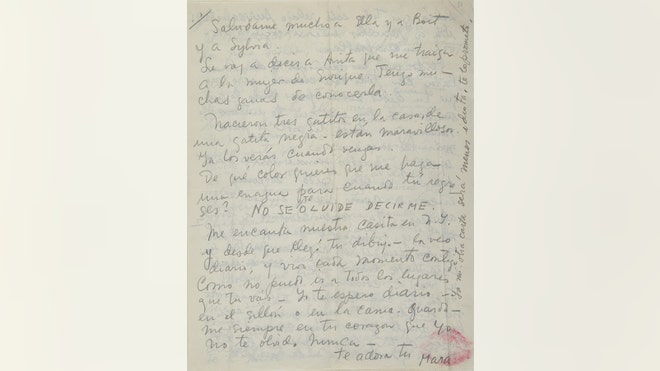 Salúdame mucho a Ella y a Bart
y a Sylvia.
Le voy a decir a Anita que me traiga
a la mujer de Enrique. Tengo mu-
chas ganas de conocerla.
Nacieron tres gatitos en la casa de
una gatita negra - están maravillosos.
Ya los verás cuando vengas.
De qué color quieres que me haga
una enagua para cuando tú regre
ses? NO SE TE OLVIDE DECIRME.
Me encanta nuestra casita en N.Y.
y desde que llegó tu dibujo - la veo
diario, y vivo cada momento contigo
Como no puedo ir a todos los lugares
que tu vas - Yo te espero diario -
en el sillón o en la cama. Guarda-
me siempre en tu corazón que Yo
no te olvido nunca -
te adora tu Mara
Ya mi otra carta será menos idiota, te lo prometo.